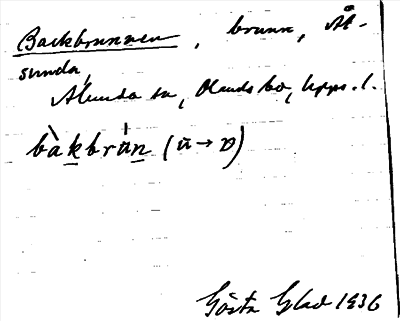 Backbrunnen, brunn, Å-
sunda,
Alunda sn, Olands hd, Upps. l.
bàkbrùn (ū→ʋ)
Gösta Glad 1936